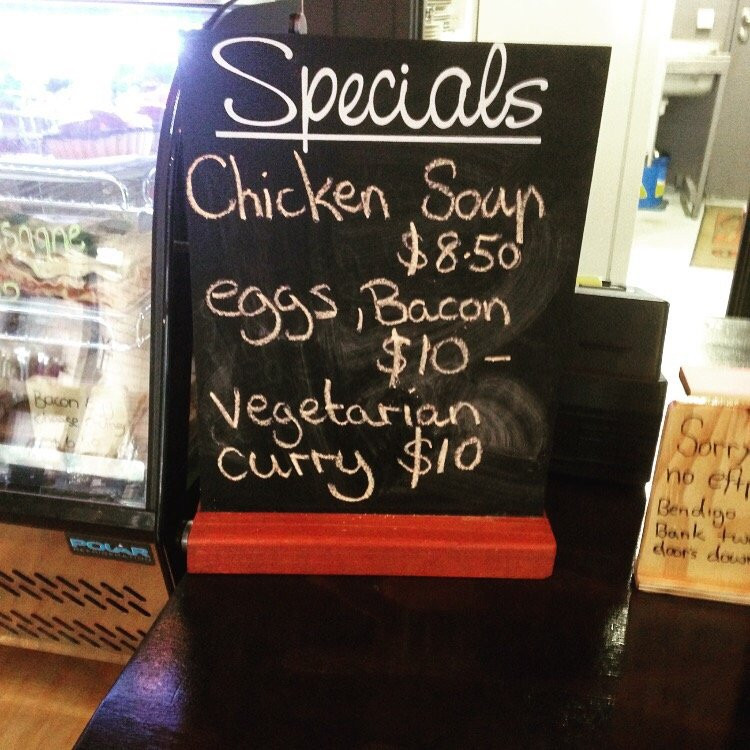 Specials
Chicken Soup
$8.50
eggs, Bacon
$10 -
vegetarian
curry $10
Sorry
no
Bendigo
Bank
door's down
Bacon
POLAR